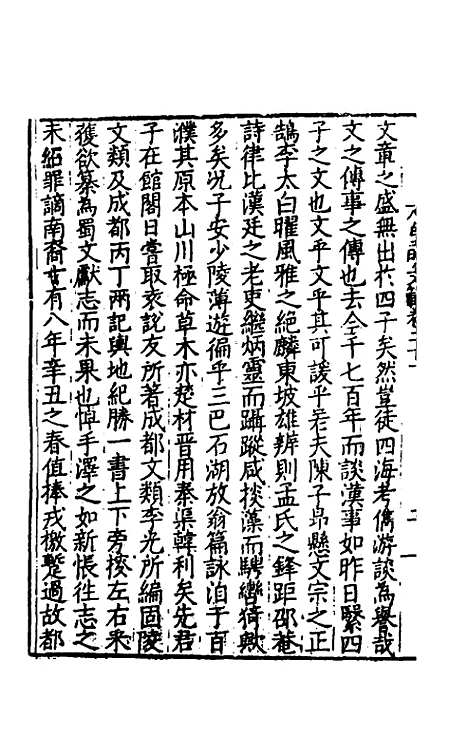 文章之盛無出於四子矣然豈徒四海考儁游談為譽哉
文之傳事之傳也去今千七百年而談漢事如昨日緊四
子之文也文乎文乎其可諼乎若夫陳子昂懸文宗之正
鵠李太白曜風雅之絕麟東坡雄辨則孟氏之鋒距邵菴
詩律比漢廷之老吏繼炳靈而躡蹤咸掞藻而騁轡猗歟
多矣況子安少陵薄遊徧乎三巴石湖放翁篇詠洎于百
濮其原本山川極命草木亦楚材晉用秦渠韓利矣先君
子在館閣日嘗取袁說友所著成都文類李光所編固陵
文類及成都丙丁兩記輿地紀勝一書上下旁搜左右采
獲欲纂為蜀文獻志而未果也悼手澤之如新悵往志之
未紹罪謫南裔廿有八年辛丑之春值捧戎檄蹔過故都